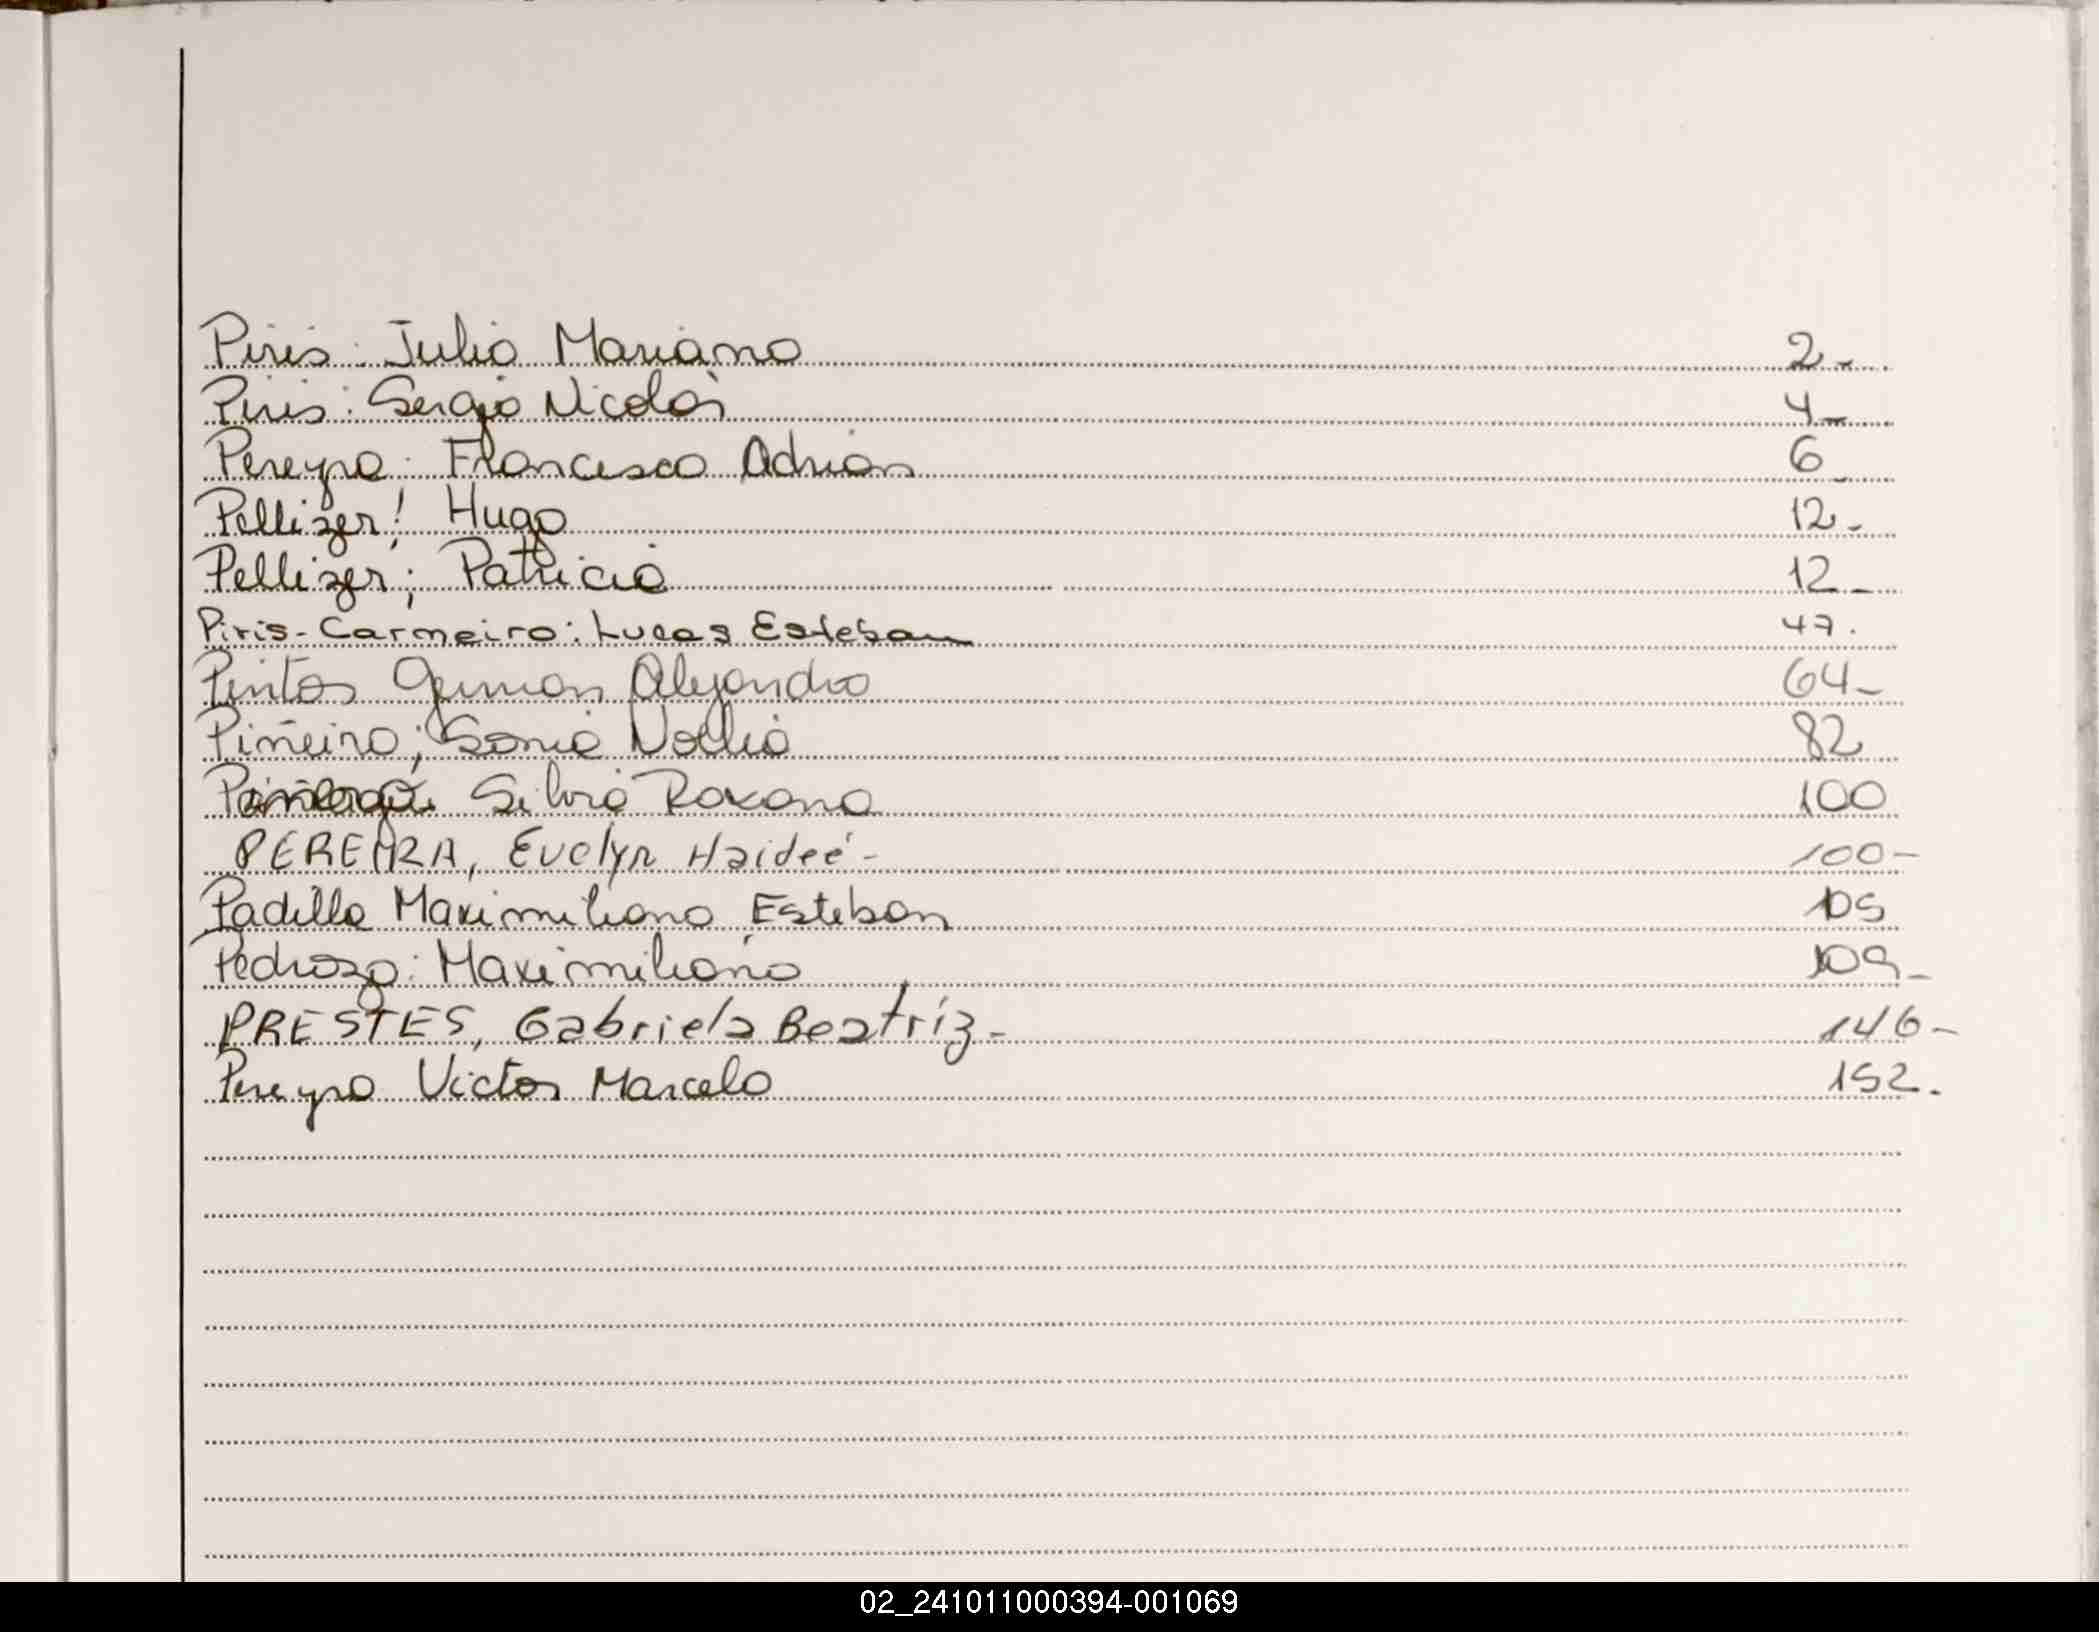 Piris: Julio Mariano 2-
Piris: Sergio Nicolás 4-
Pereyra: Francisco Adrian 6-
Pellizer: Hugo 12-
Pellizer; Patricia 12-
Piris-Carneiro: Lucas Esteban 47.
Pintos German Alejandro 64-
Piñeiro; Sonia Noelia 82
Silvia Roxana 100
PEREYRA, Evelyn Haideé- 100-
Padilla Maximiliano Esteban 105
Pedrozo: Maximiliano 109-
PRESTES, Gabriela Beatríz- 146-
Pereyra Victor Marcelo 152.
02_241011000394-001069